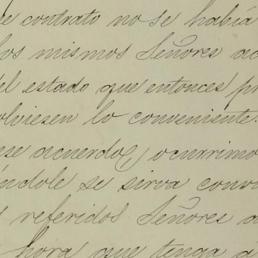 e contrato no se había
los mismos Señores ac
del estado que entonces pr
olviesen lo conveniente.
ese acuerdo, ocurrimo
éndole se sirva convo
s referidos Señores a
hora que tenga á